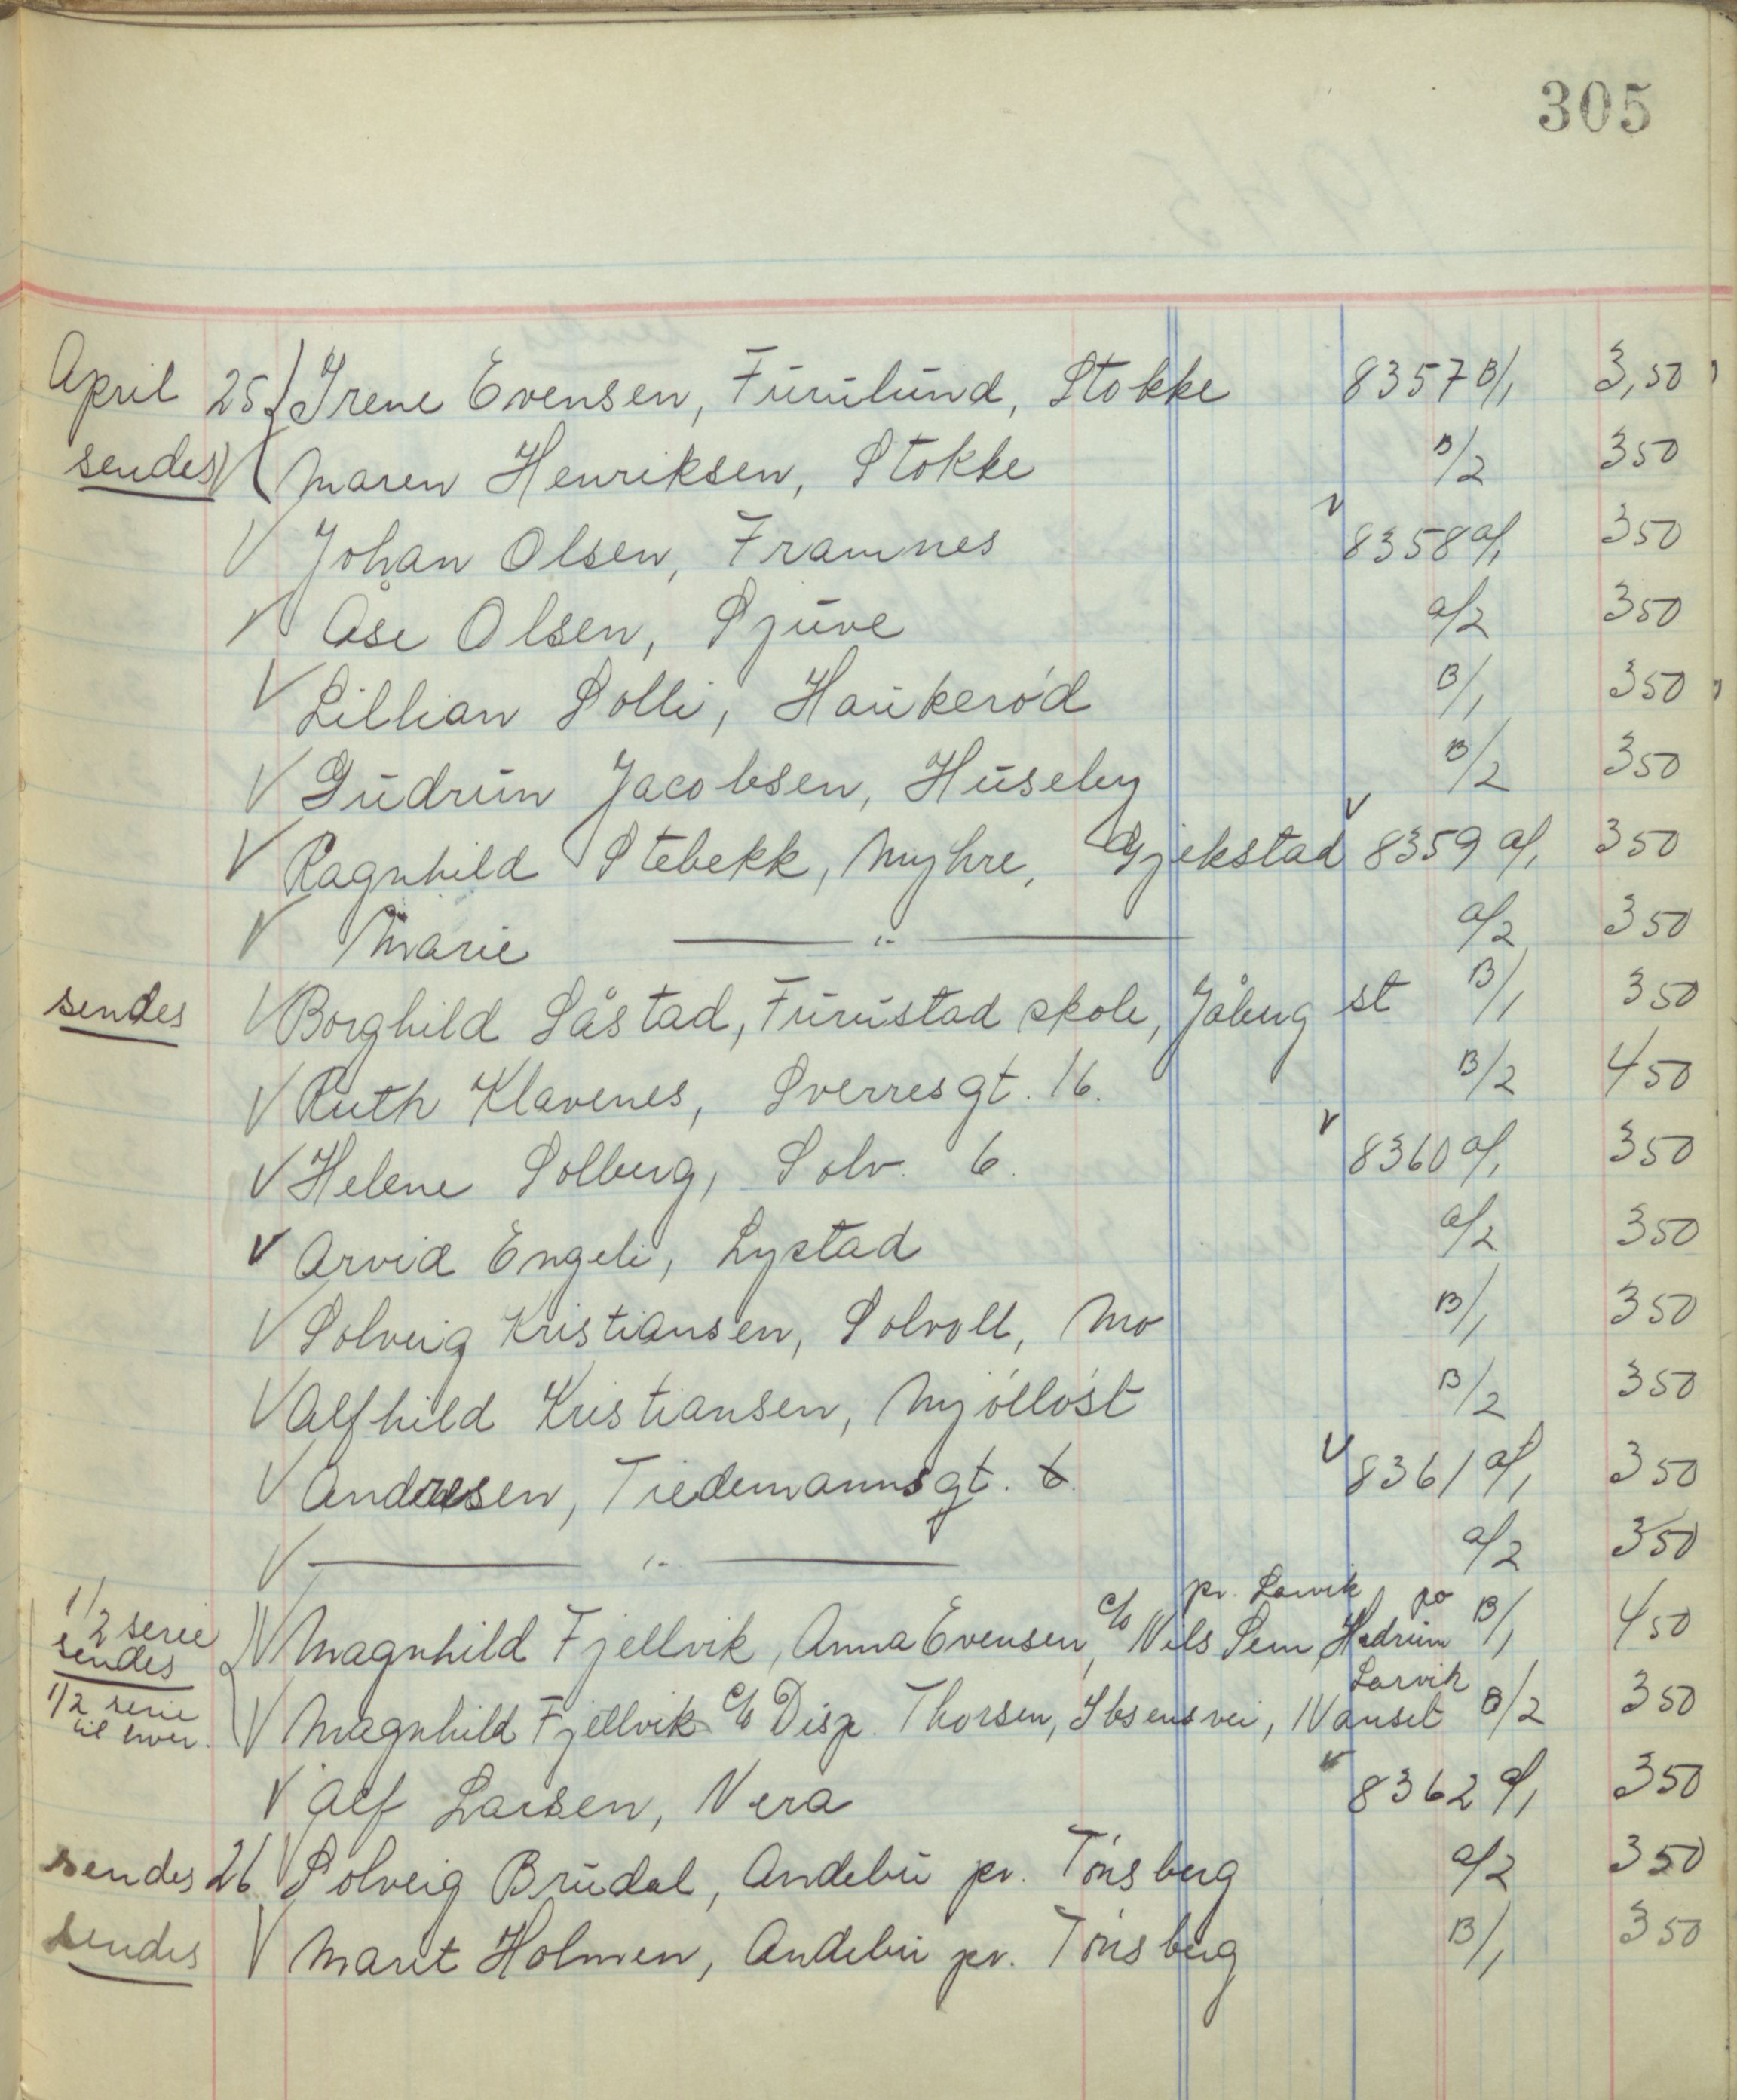 305
April 25 Irene Evensen, Furulund, Stokke 8357 B/1 3,50
sendes V Maren Henriksen, Stokke B/2 350
V Johan Olsen, Framnes V 8358 a/1 350
V Åse Olsen, Sjuve a/2 350
V Lillian Solli, Haukerød B/1 350
V Gudrun Jacobsen, Huseby B/2 350
V Ragnhild Stebekk, Myhre, Gjekstad V 8359 a/1 350
V Marie —— " —— a/2 350
sendes V Borghild Såstad, Furustad skole, Jåberg st B/1 350
V Ruth Klavenes, Sverresgt. 16. B/2 450
V Helene Solberg, Solv. 6. V 8360 a/1 350
V Arvid Engeli, Lystad a/2 350
V Solveig Kristiansen, Solvoll, Mo B/1 350
V Alfhild Kristiansen, Mjølløst B/2 350
V Andresen, Tiedemannsgt. 6. V 8361 a/1 350
V —— " —— a/2 350
pr. Larvik po
1/2 serie sendes V Magnhild Fjellvik, Anna Evensen, c/o Nils Sem, Hedrum B/1 450
Larvik
1/2 serie til hver. V Magnhild Fjellvik c/o Disp. Thorsen, Ibsens vei, Nanset B/2 350
V Alf Larsen, Vera V 8362 a/1 350
sendes 26 V Solveig Brudal, Andebu pr. Tønsberg a/2 350
sendes V Marit Holmen, Andebu pr. Tønsberg B/1 350